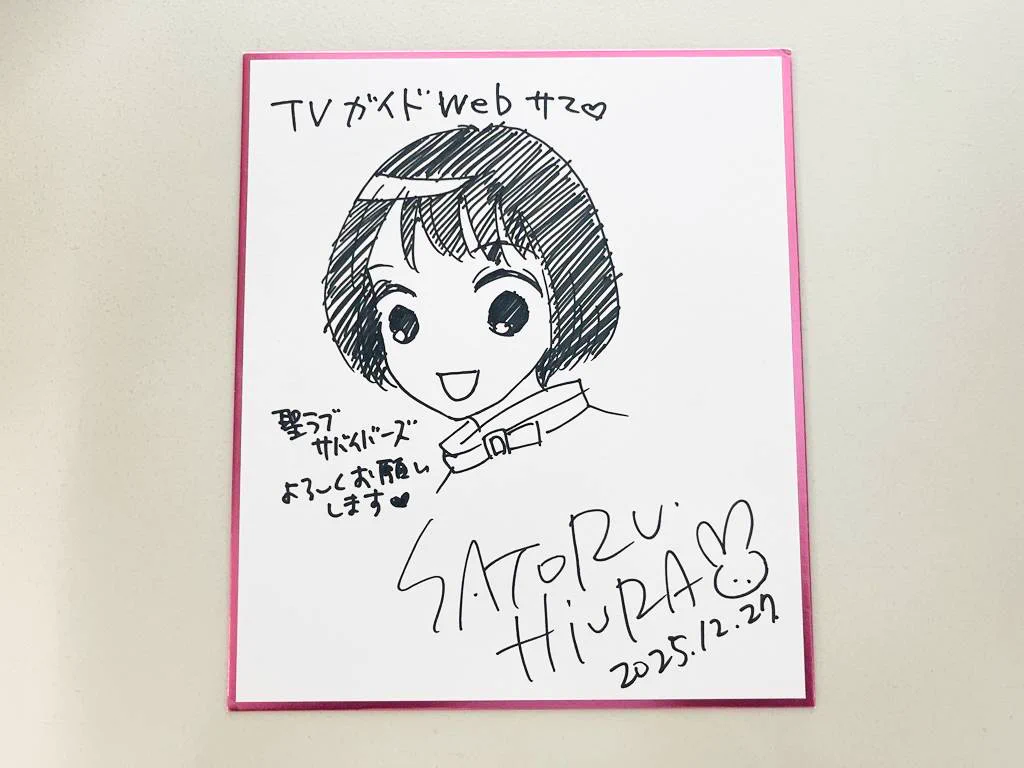 TVガイドWebサマ♡
聖ラブ
サバイバーズ
よろしくお願い
します♥
SATORU.
HiURA
2025.12.27